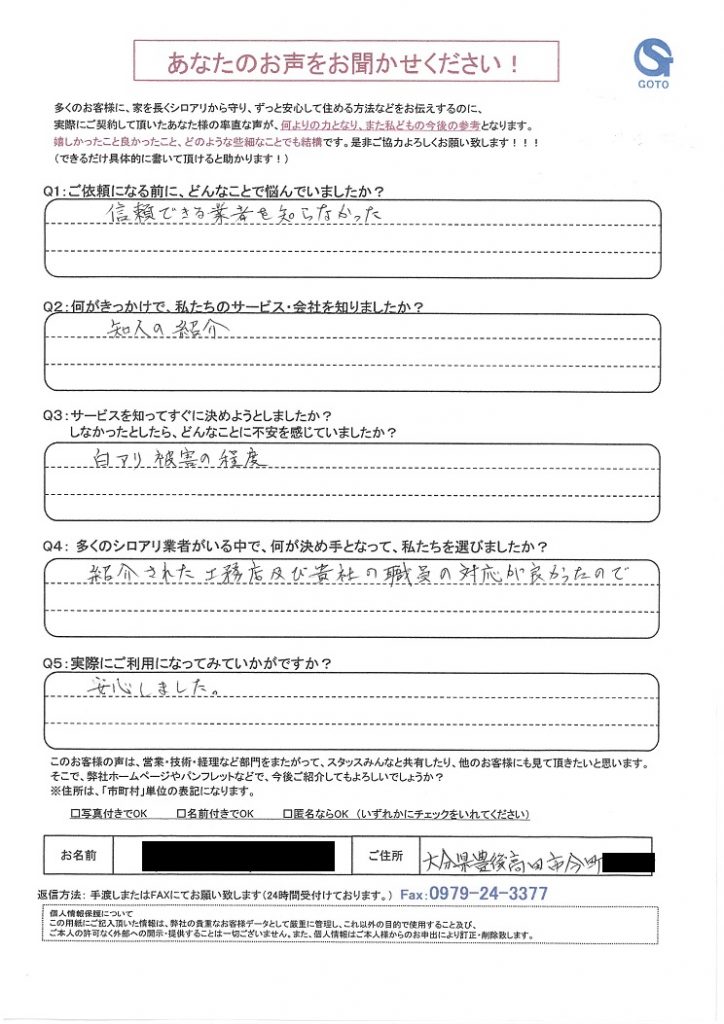 あなたのお声をお聞かせください!
GOTO
多くのお客様に、家を長くシロアリから守り、ずっと安心して住める方法などをお伝えするのに、
実際にご契約して頂いたあなた様の率直な声が、何よりの力となり、また私どもの今後の参考となります。
嬉しかったこと良かったこと、どのような些細なことでも結構です。是非ご協力よろしくお願い致します!!!
(できるだけ具体的に書いて頂けると助かります!)
Q1:ご依頼になる前に、どんなことで悩んでいましたか?
信頼できる業者を知らなかった
Q2:何がきっかけで、私たちのサービス・会社を知りましたか?
知人の紹介
Q3:サービスを知ってすぐに決めようとしましたか?
しなかったとしたら、どんなことに不安を感じていましたか?
白アリ被害の程度
Q4: 多くのシロアリ業者がいる中で、何が決め手となって、私たちを選びましたか?
紹介された工務店及び貴社の職員の対応が良かったので
Q5:実際にご利用になってみていかがですか?
安心しました。
このお客様の声は、営業・技術・経理など部門をまたがって、スタッスみんなと共有したり、他のお客様にも見て頂きたいと思います。
そこで、弊社ホームページやパンフレットなどで、今後ご紹介してもよろしいでしょうか?
※住所は、「市町村」単位の表記になります。
□写真付きでOK □名前付きでOK □匿名ならOK (いずれかにチェックをいれてください)
お名前 ご住所 大分県豊後高田市今町
返信方法: 手渡しまたはFAXにてお願い致します(24時間受付けております。) Fax:0979-24-3377
個人情報保護について
この用紙にご記入頂いた情報は、弊社の貴重なお客様データとして厳重に管理し、これ以外の目的で使用すること及び、
ご本人の許可なく外部への開示・提供することは一切ございません。また、個人情報はご本人様からのお申出により訂正・削除致します。